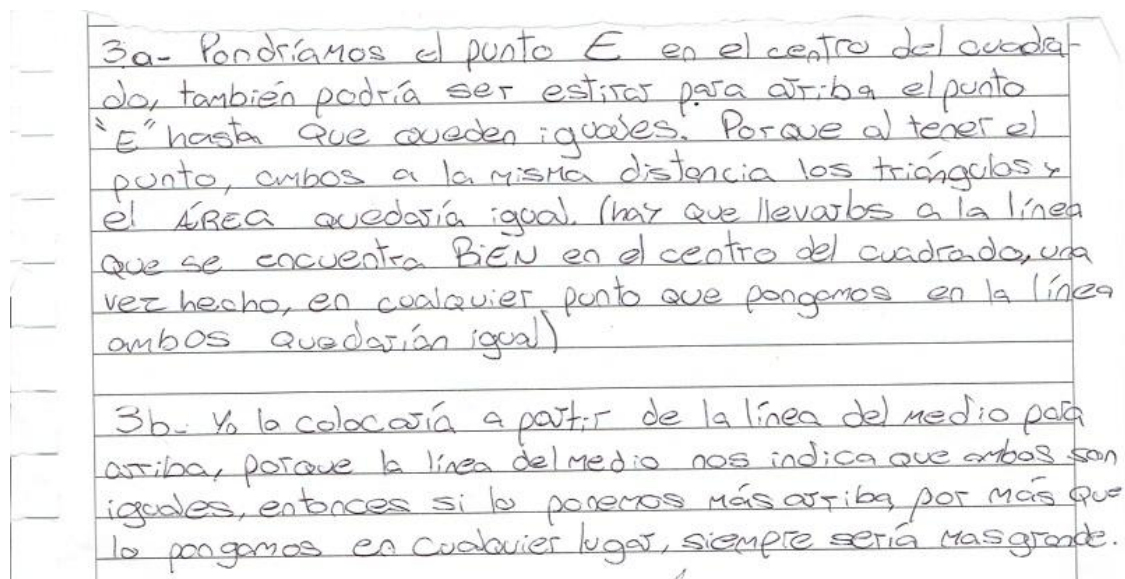 3a- Pondríamos el punto E en el centro del cuadra-
do, también podría ser estirar para arriba el punto
"E" hasta que queden iguales. Porque al tener el
punto, ambos a la misma distancia los triángulos y
el ÁREA quedaría igual. (hay que llevarlos a la línea
que se encuentra BIEN en el centro del cuadrado, una
vez hecho, en cualquier punto que pongamos en la línea
ambos quedarían igual)
3b- Yo la colocaría a partir de la línea del medio para
arriba, porque la línea del medio nos indica que ambos son
iguales, entonces si lo ponemos más arriba, por más que
lo pongamos en cualquier lugar, siempre sería mas grande.